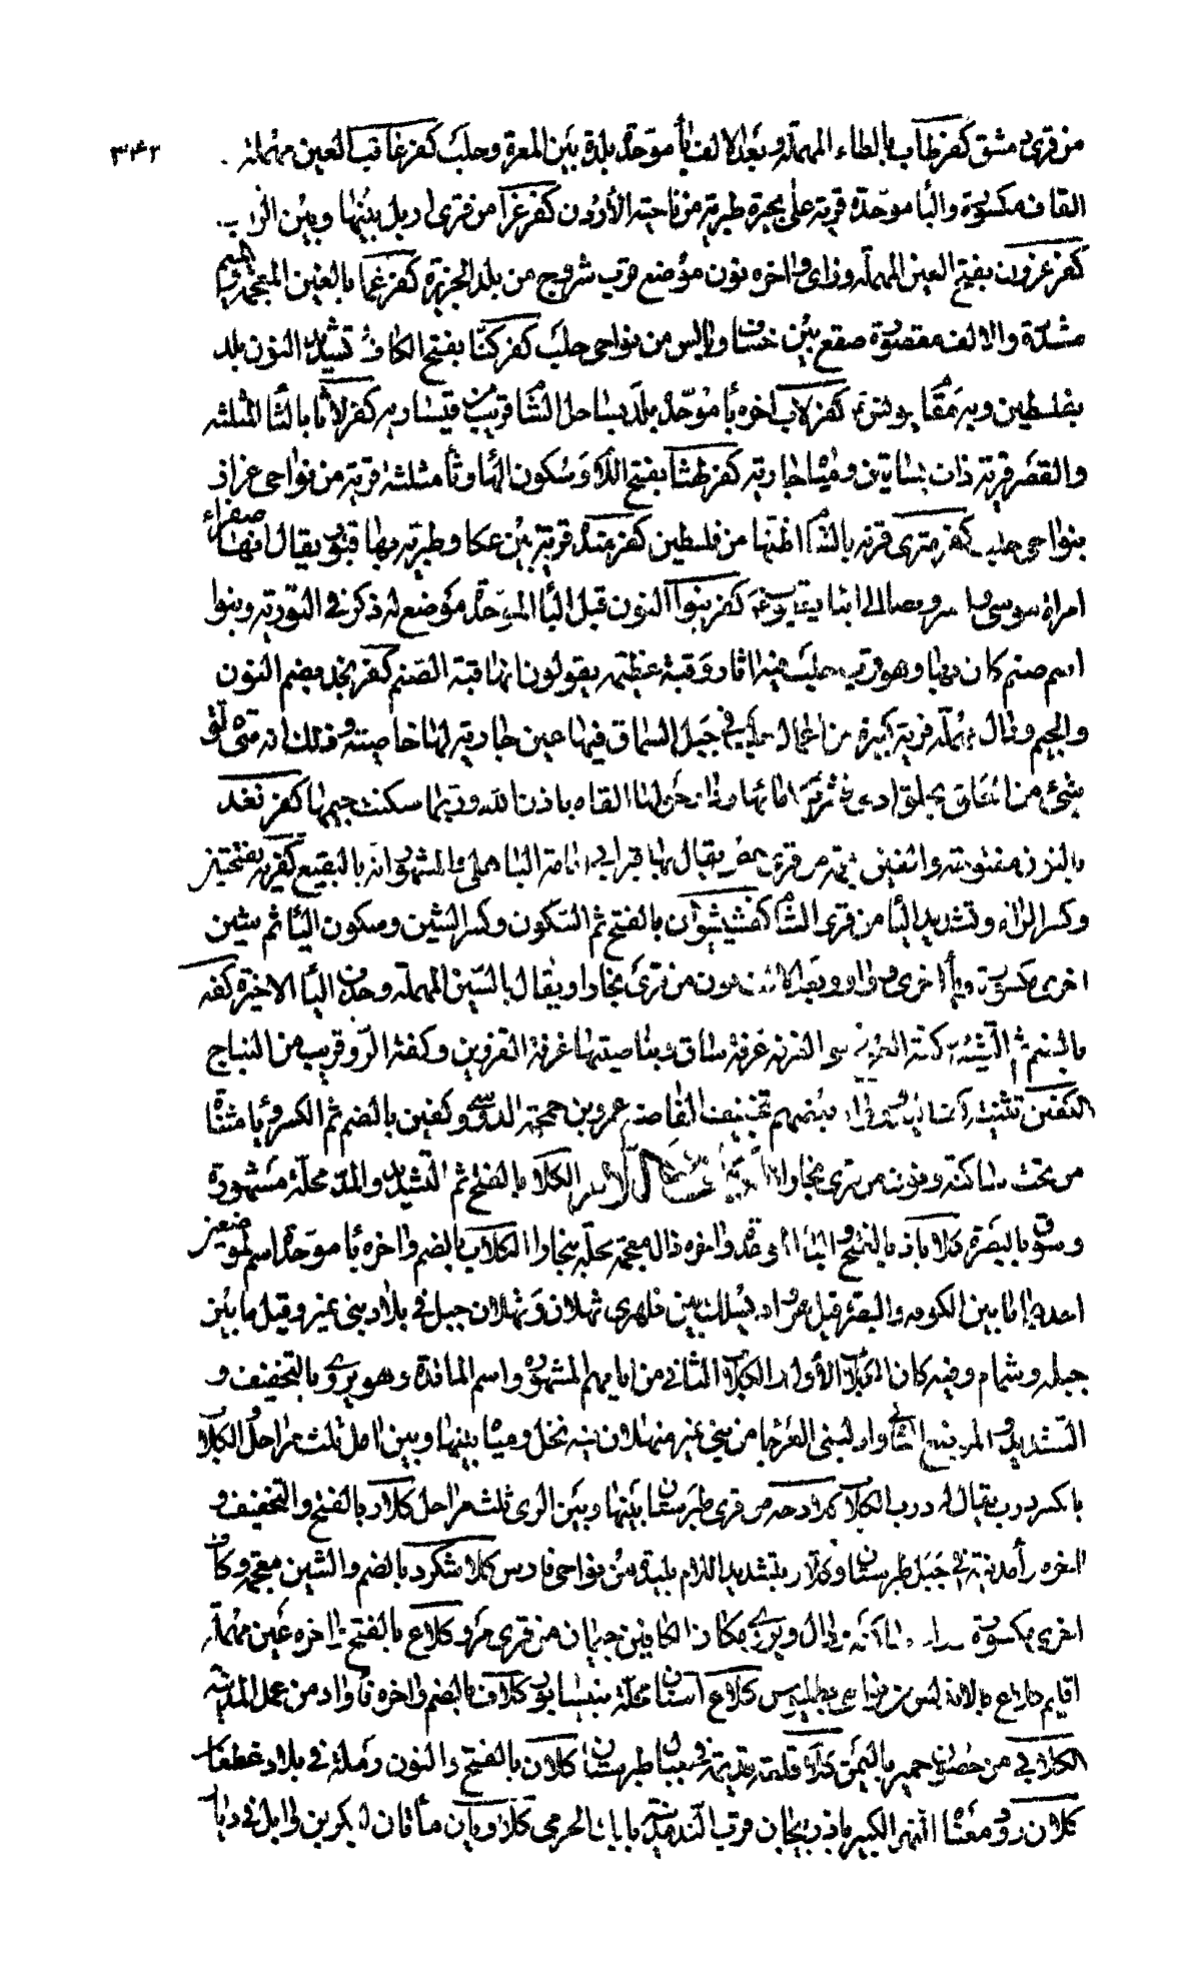 ٣٤٢
من قرى دمشق كفرطاب بالطاء المهملة وبعد الالف بأ موحدة بلدة بين المعرة وحلب كفرعاقب العين مهملة
القاف مكسورة والبا موحدة قرية على بحيرة طبرية من ناحية الأردن كفرعزا من قرى اربل بينها وبين الزاب
كفرعزون بفتح العين المهملة وزاى واخره نون موضع قرب سروج من بلد الجزيرة كفرغما بالغين المعجمة والميم
مشددة والالف مقصورة صقع بين خساف وبالس من نواحى حلب كفركنا بفتح الكاف وتشديد النون بلد
بفلسطين وبه مقام يونس كفرلاب اخره بأ موحدة بلد بساحل الشام قريب من قيسارية كفرلاثا بالثا المثلثه
والقصر قرية ذات بساتين ومياه جارية كفرلهثا بفتح اللام وسكون الها وثا مثلثة قرية من نواحى عزاز
بنواحى حلب كفرمثرى قرية بالشام اظنها من فلسطين كفرمندة قرية بين عكا وطبرية بها قبر يقال انها صفراء
امراة موسى كفرنبوا النون قبل البأ الموحدة موضع له ذكر فى التوراة ونبوا
اسم صنم كان بها وهو قرب حلب فيه اثار وقبة عظيمة يقولون انها قبة الصنم كفرنجد بضم النون
والجيم ودال مهملة قرية كبيرة من اعمال حلب فى جبل السماق فيها عين جارية لها خاصية وذلك انه متى علق
شئ من العلق بحلق ادمى القاه باذن الله وربما سكنت حيها كفرنغد
بالنون مفتوحة والغين معجمة من قرى حمص يقال بها قبر ابى امامة الباهلى والمشهور انه بالبقيع كفريه بفتحتين
وكسر الراء وتشديد اليأ من قرى الشام كفشيشوان بالفتح ثم السكون وكسر الشين وسكون اليا ثم شين
اخرى مكسورة ويأ اخرى وواو وبعد الالف نون من قرى بخارا ويقال بالسين المهملة وحذف اليأ الاخيرة كفه
بالضم ثم التشديد عرفة ساق بناصيتها عرفة القزوين وكفة الدو قريب من النباج
الكفين تثنية بعضهم تخفيف الفا صنم عمرو بن حممة الدوسى وكفين بالضم ثم الكسر ويا مثناة
من تحت ساكنة ونون من قرى بخارا الكلا بالفتح ثم التشديد والمد محلة مشهورة
وسوق بالبصرة كلاباذ بالفتح واخره ذال معجمة محلة ببخارا الكلاب بالضم واخره بأ موحدة اسم لموضعين
احدهما ما بين الكوفه والبصرة قيل هو واد يسلك بين ظهرى ثهلان وثهلان جبل فى بلاد بنى نمير وقيل ما بين
جبله وشمام وفيه كان الكلاب الأول والكلاب الثانى من ايامهم المشهورة واسم الما قدة وهو يروى بالتخفيف و
التشديد واد لبنى العرجا من بنى نمير ثهلان به نخل ومياه بينها وبين ثلث مراحل والكلاب
بالكسر درب يقال له درب الكلاب كلادجه من قرى طبرستان بينها وبين الرى ثلث مراحل كلار بالفتح والتخفيف و
اخره رأ مدينة فى جبل طبرستان وكلار بتشديد اللام بليدة من نواحى فارس كلاشكرد بالضم والشين معجمة وكاف
اخرى مكسورة ودال ويروى مكان الكافين جيمان من قرى مرو كلاع بالفتح واخره عين مهملة
اقليم كلاع بالاندلس من نواحى بطليوس كلاع اسنان محلة بنيسابور كلاف بالضم واخره فا واد من عمل المدينة
الكلافى من حصون حمير باليمن كلام قلعة قديمة فى جبال طبرستان كلان بالفتح والنون رملة فى بلاد غطفان
كلان روذ معناه النهر الكبير باذربيجان قرب البذ مدينة بابك الخرمى كلاوتان ماآن لبكر بن وايل فى ديار